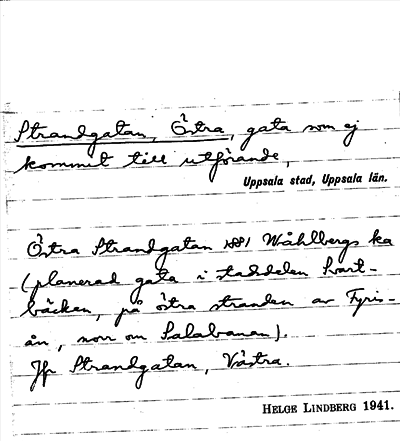 Strandgatan, Östra, gata som ej
kommit till utförande,
Uppsala stad, Uppsala län.
Östra Strandgatan 1881 Wåhlbergs ka
(planerad gata i stadsdelen Svart-
bäcken, på östra stranden av Fyris-
ån, norr om Salabanan).
Jfr Strandgatan, Västra.
HELGE LINDBERG 1941.